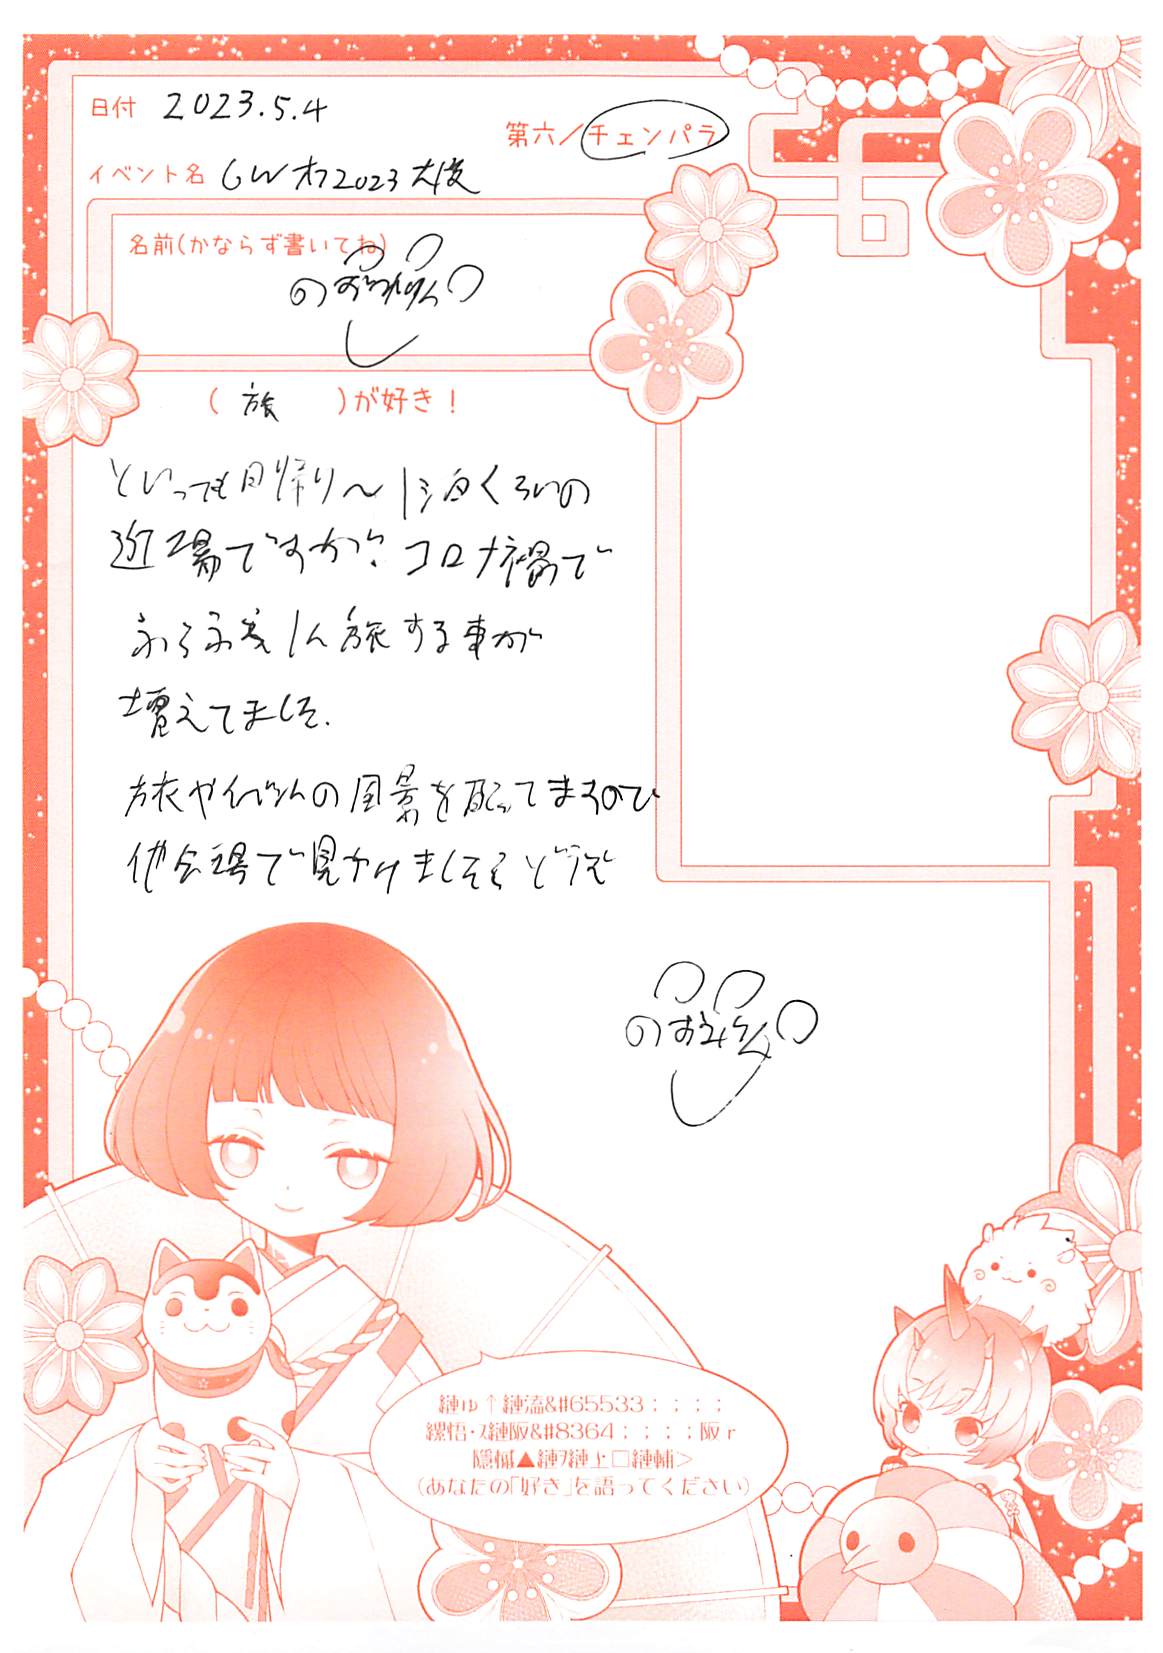 日付 2023.5.4
第六／チェンパラ
イベント名 GWオフ2023大阪
名前(かならず書いてね)
( 旅 )が好き！
といっても日帰り〜1泊くらいの
近場ですが、コロナ禍で
ふらふらと1人旅する事が
増えてました。
旅やイベントの風景を配ってますので
他会場で見かけましたらどうぞ
縺ゅ↑縺溢&#65533；；；；
縲悟･ｽ縺阪&#8364；；；；阪ｒ
隱槭▲縺ｦ縺上□縺輔>
(あなたの「好き」を語ってください)